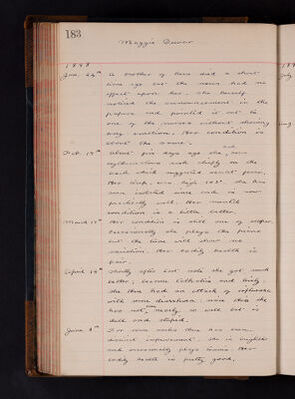 183
Maggie Dewar
1898
Jan. 24th A brother of hers died a short
time ago but the news had no
effect upon her. She barely
noticed the announcement in the
papers and pointed it out to
one of the nurses without showing
any emotion. Her condition is
about the same.
Feb. 18th About five days ago she had
erythematous rash chiefly on the
back which suggested scarlet fever,
Her temp. was high 103°. She has
been isolated since and is now
practically well. Her mental
condition is a little better.
March 18th Her condition is still one of stupor
Occasionally she plays the piano
but the time will show no
variation. Her bodily health is
fair.
April 19th Shortly after last note she got much
better, became talkative and lively
She then had an attack of influenza
with some diarrhoea. Since then she
has not been nearly so well but is
dull and stupid.
June 8th For some weeks there has been
decided improvement. She is brighter
and occasionally plays tennis. Her
bodily health is pretty good.
189
July